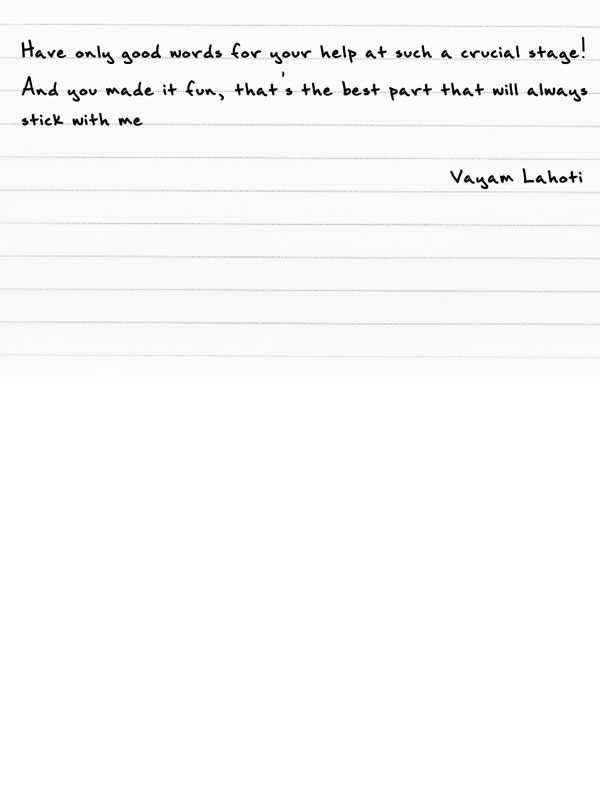 Have only good words for your help at such a crucial stage!
And you made it fun, that's the best part that will always
stick with me
Vayam Lahoti